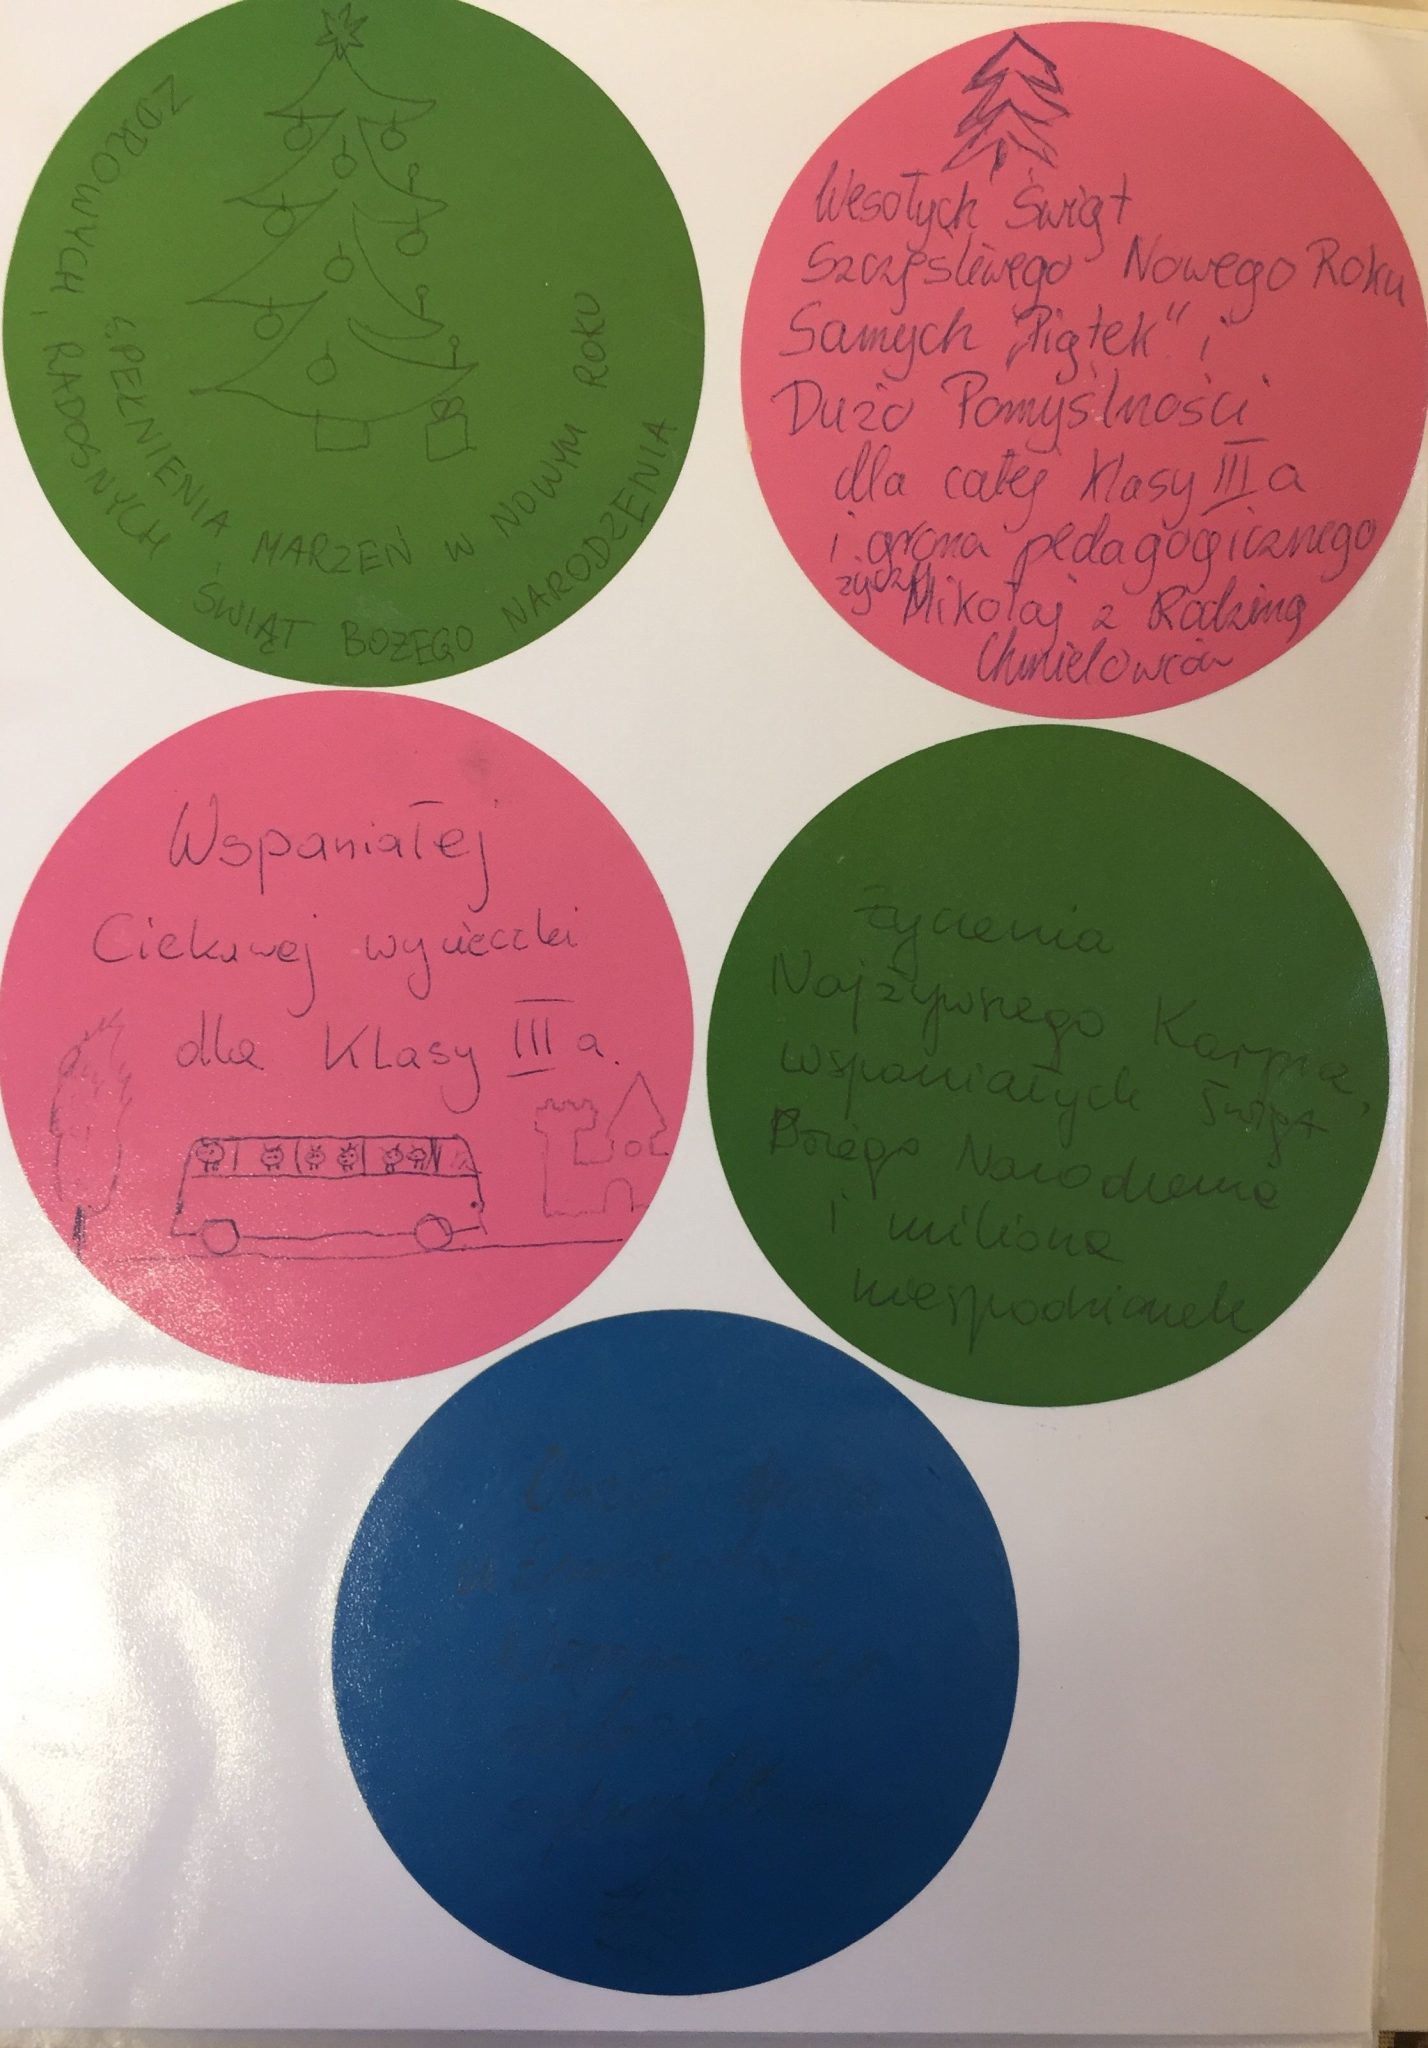 ZDROWYCH I RADOSNYCH ŚWIĄT BOŻEGO NARODZENIA
SPEŁNIENIA MARZEŃ W NOWYM ROKU
Wesołych Świąt
Szczęśliwego Nowego Roku
Samych "Piątek" i
Dużo Pomyślności
dla całej Klasy III a
i grona pedagogicznego
życzy Mikołaj z Rodziną
Chmielowców
Wspaniałej
Ciekawej wycieczki
dla Klasy III a.
Życzenia
Najżywszego Karpia,
wspaniałych Świąt
Bożego Narodzenia
i miliona
niespodzianek